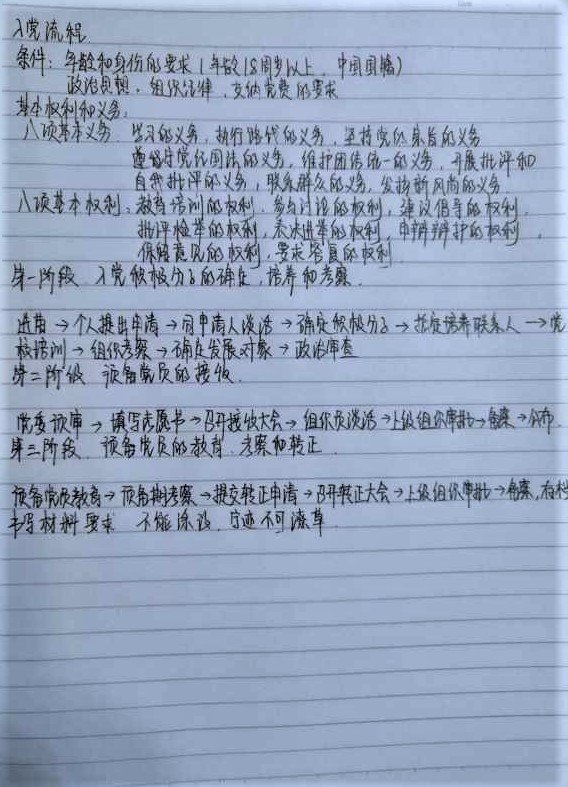 入党流程.
条件: 年龄和身份的要求(年龄18周岁以上, 中国国籍)
政治思想, 组织法律, 交纳党费的要求
基本权利和义务:
八项基本义务 学习的义务, 执行路代的义务, 坚持党的宗旨的义务
遵守党纪国法的义务, 维护团结统一的义务, 开展批评和
自我批评的义务, 联系群众的义务, 发扬新风尚的义务.
八项基本权利: 教育培训的权利, 参与讨论的权利, 建议倡导的权利,
批评检举的权利, 表决选举的权利, 申辩辩护的权利,
保留意见的权利, 要求答复的权利
第一阶段. 入党积极分子的确定, 培养和考察.
近苗→个人提出申请→同申请人谈话→确定积极分子→指定培养联系人→党
校培训→组织考察→确定发展对象→政治审查
第二阶段 预备党员的接收.
党委预审→填写志愿书→召开接收大会→组织员谈话→上级组织审批→备案→公布.
第三阶段. 预备党员的教育, 考察和转正.
预备党员教育→预备期考察→提交转正申请→召开转正大会→上级组织审批→备案, 存档
书写材料要求 不能涂改, 字迹不可潦草.